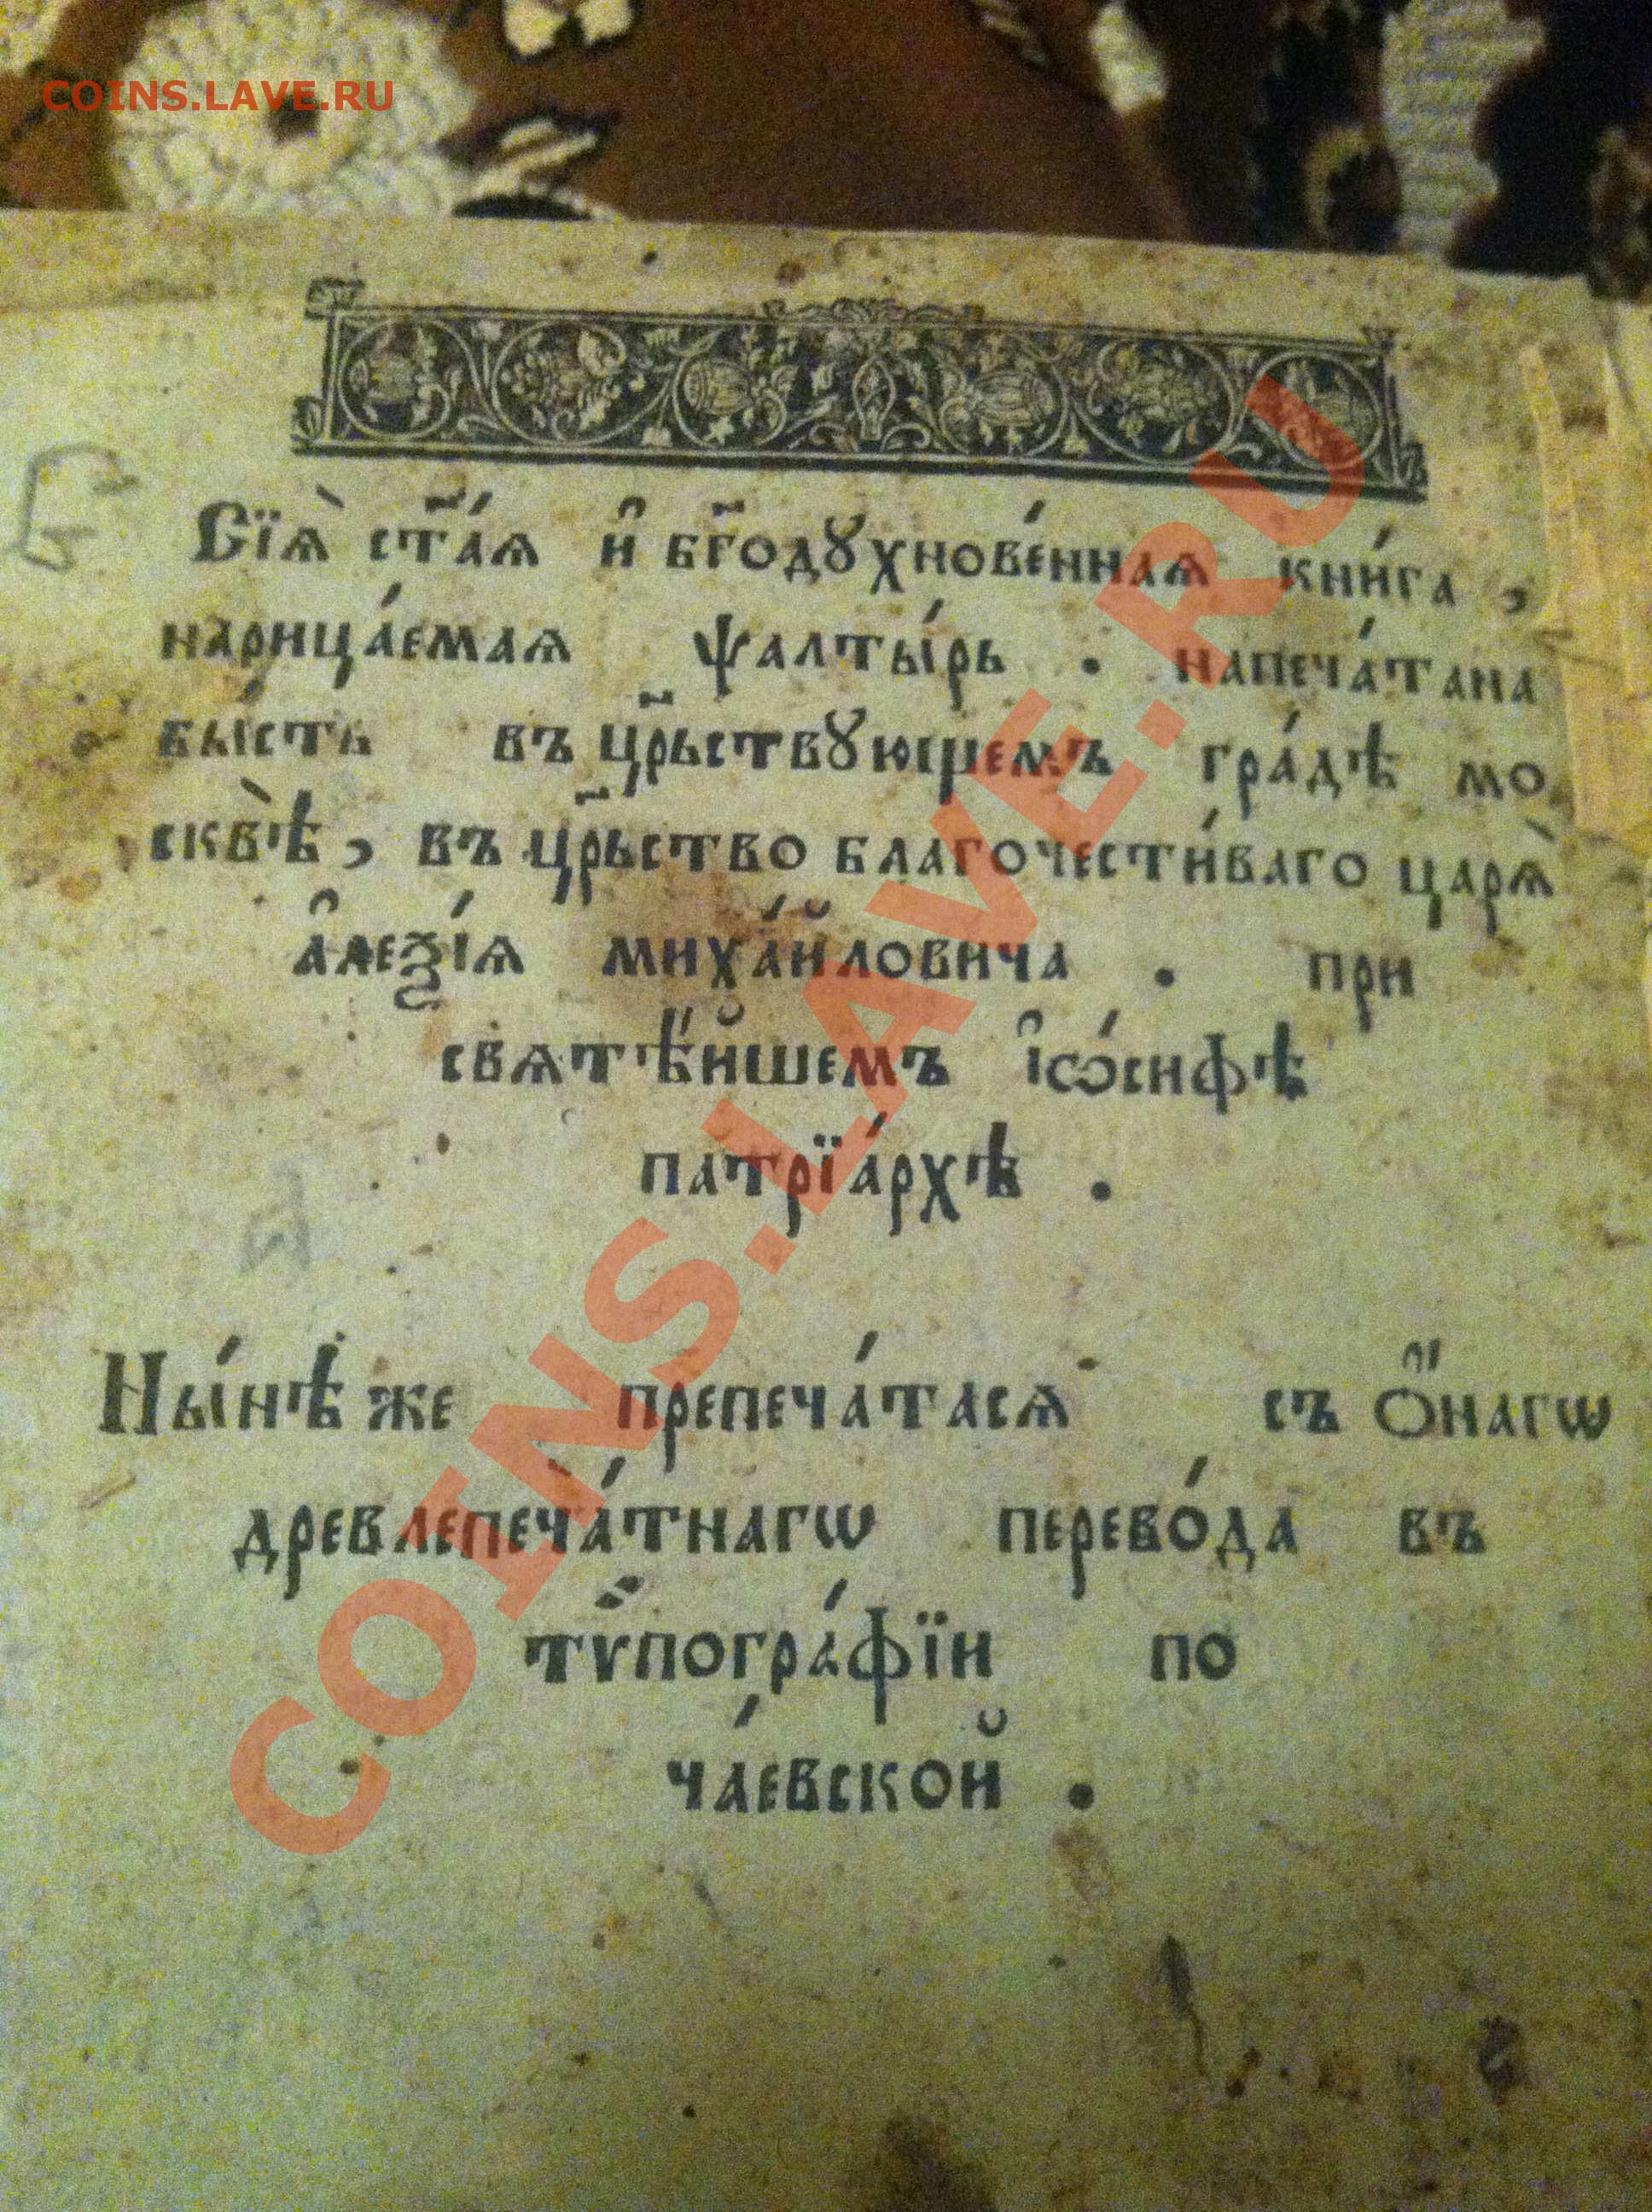 COINS.LAVE.RU
Сїѧ̀ ст҃а́ѧ и҆ бг҃одꙋхнове́ннаѧ кни́га ,
нарица́емаѧ ѱалты́рь . напеча́тана
бы́сть въ цр҃ьствꙋющемъ гра́дѣ мо
сквѣ̀ , въ цр҃ьство благочести́ваго царѧ̀
а҆леѯі́ѧ миха́йловича . при
свѧтѣ́йшемъ і҆ѡ́сифѣ
патрїа́рхѣ .
Ны́нѣ же препеча́тасѧ съ ѻ҆́нагѡ
древлепеча́тнагѡ перево́да въ
тѷпогра́фїи по
ча́евской .
COINS.LAVE.RU